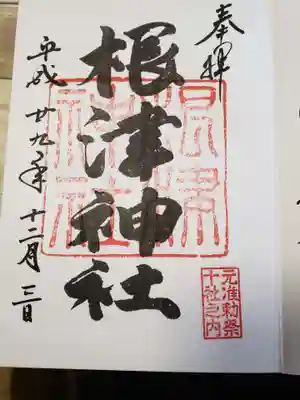 奉拝
根津神社
元准勅祭
十社之内
平成廿九年十二月三日